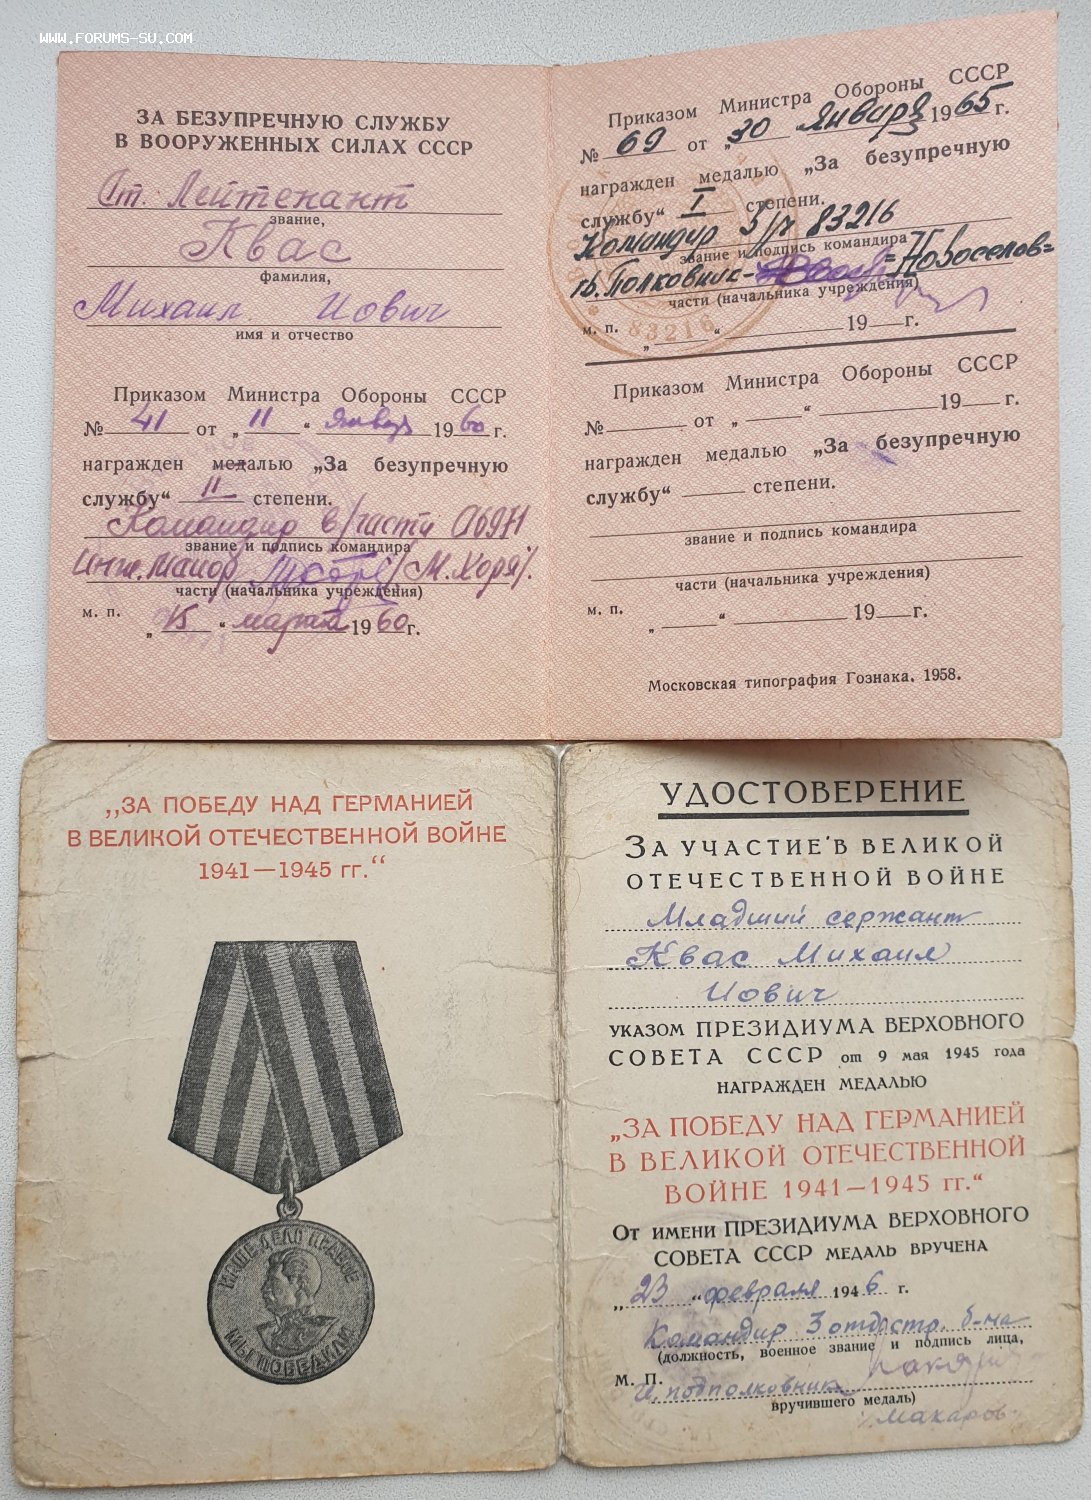 WWW.FORUMS-SU.COM
ЗА БЕЗУПРЕЧНУЮ СЛУЖБУ
В ВООРУЖЕННЫХ СИЛАХ СССР
Ст. Лейтенант
звание,
Квас
фамилия,
Михаил Иович
имя и отчество
Приказом Министра Обороны СССР
№ 41 от „ 11 “ января 1960 г.
награжден медалью „За безупречную
службу“ II степени.
Командир в/части 06971
звание и подпись командира
Инж. Майор /М. Хоря/.
части (начальника учреждения)
м. п.
„ 15 “ марта 1960 г.
Приказом Министра Обороны СССР
№ 69 от „ 30 Января 1965 г.
награжден медалью „За безупречную
службу“ I степени.
Командир в/ч 83216
звание и подпись командира
гв. Полковник =Новоселов=
части (начальника учреждения)
83216
м. п.
„ “ 19 г.
Приказом Министра Обороны СССР
№ от „ “ 19 г.
награжден медалью „За безупречную
службу“ степени.
звание и подпись командира
части (начальника учреждения)
м. п.
„ “ 19 г.
Московская типография Гознака. 1958.
„ЗА ПОБЕДУ НАД ГЕРМАНИЕЙ
В ВЕЛИКОЙ ОТЕЧЕСТВЕННОЙ ВОЙНЕ
1941—1945 гг.“
НАШЕ ДЕЛО ПРАВОЕ
МЫ ПОБЕДИЛИ
УДОСТОВЕРЕНИЕ
ЗА УЧАСТИЕ В ВЕЛИКОЙ
ОТЕЧЕСТВЕННОЙ ВОЙНЕ
Младший сержант
Квас Михаил
Иович
УКАЗОМ ПРЕЗИДИУМА ВЕРХОВНОГО
СОВЕТА СССР от 9 мая 1945 года
НАГРАЖДЕН МЕДАЛЬЮ
„ЗА ПОБЕДУ НАД ГЕРМАНИЕЙ
В ВЕЛИКОЙ ОТЕЧЕСТВЕННОЙ
ВОЙНЕ 1941—1945 гг.“
ОТ ИМЕНИ ПРЕЗИДИУМА ВЕРХОВНОГО
СОВЕТА СССР МЕДАЛЬ ВРУЧЕНА
„ 23 “ февраля 1946 г.
Командир 3 отд. стр. б-на
(должность, военное звание и подпись лица,
М. П.
подполковник
вручившего медаль)
Макаров